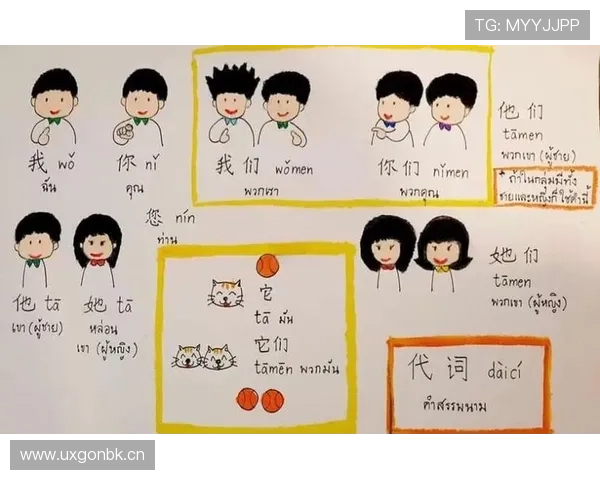 TG: MYYJJPP
我 wǒ
ฉัน
你 nǐ
คุณ
我们 wǒmen
พวกเรา
你们 nǐmen
พวกคุณ
他们
tāmen
พวกเขา (ผู้ชาย)
* ถ้าในกลุ่มมีทั้ง
ชายและหญิงก็ใช้คำนี้
您 nín
ท่าน
他 tā
เขา (ผู้ชาย)
她 tā
หล่อน
เขา (ผู้หญิง)
它
tā มัน
它们
tāmēn พวกมัน
她们
tāmen
พวกเขา (ผู้หญิง)
代词 dàicí
คำสรรพนาม
www.uxgonbk.cn